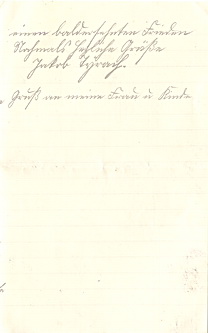 einen baldersehnten Frieden
Nochmals herzliche Grüße
Jakob Tyrach.
Gruß an meine Frau u Kind